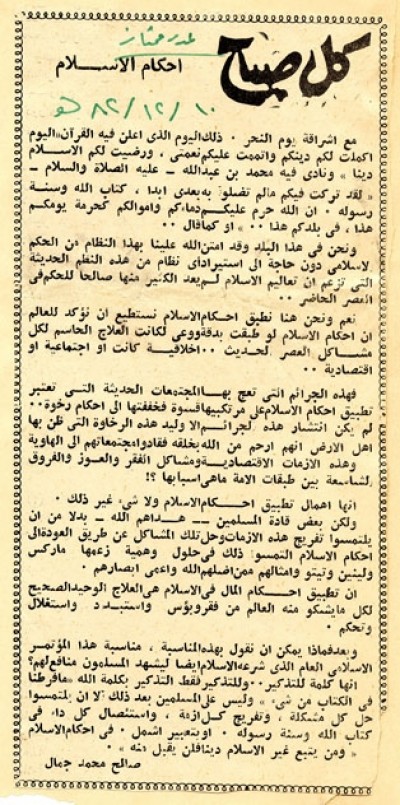 عدد ممتاز
كل صباح
احكام الاسـلام
١٠/١٢/٨٢ هـ
مع اشراقة يوم النحر ٠ ذلك اليوم الذى اعلن فيه القرآن «اليوم
اكملت لكم دينكم واتممت عليكم نعمتى ، ورضيت لكم الاسلام
دينا » ونادى فيه محمد بن عبدالله ــ عليه الصلاة والسلام ــ
« لقد تركت فيكم مالم تضلوا به بعدى ابدا ، كتاب الله وسنة
رسوله ٠ ان الله حرم عليكم دماءكم واموالكم كحرمة يومكم
هذا ، فى بلدكم هذا ٠٠ » او كما قال ٠٠
ونحن فى هذا البلد وقد امتن الله علينا بهذا النظام من الحكم
لاسلامى دون حاجة الى استيراد أى نظام من هذه النظم الحديثة
التى تزعم ان تعاليم الاسلام لم يعد الكثير منها صالحا للحكم فى
العصر الحاضر ٠٠
نعم ونحن هنا نطبق احكام الاسلام نستطيع ان نؤكد للعالم
ان احكام الاسلام لو طبقت بدقة ووعى لكانت العلاج الحاسم لكل
مشاكل العصر الحديث ٠٠ اخلاقية كانت او اجتماعية او
اقتصادية ٠٠
فهذه الجرائم التى تعج بها المجتمعات الحديثة التـى تعتبر
تطبيق احكام الاسلام على مرتكبيها قسوة فخففتها الى احكام رخوة ٠٠
لم يكن انتشار هذه الجرائم الا وليد هذه الرخاوة التى ظن بها
اهل الارض انهم ارحم من الله بخلقه فقادوا مجتمعاتهم الى الهاوية
وهذه الازمات الاقتصادية ومشاكل الفقر والعوز والفروق
لشاسعة بين طبقات الامة ماهى اسبابها ؟!
انها اهمال تطبيق احكام الاسلام ولا شىء غير ذلك ٠
ولكن بعض قادة المسلمين ــ هداهم الله ــ بدلا من ان
يلتمسوا تفريج هذه الازمات وحل تلك المشاكل عن طريق العودة الى
احكام الاسلام التمسوا ذلك فى حلول وهمية زعمها ماركس
ولينين وتيتو وامثالهم ممن اضلهم الله واعمى ابصارهم ٠
ان تطبيق احكام المال فى الاسلام هى العلاج الوحيد الصحيح
لكل مايشكو منه العالم من فقر وبؤس واستبـداد واستغلال
وتحكم ٠
وبعد فماذا يمكن ان نقول بهذه المناسبة ، مناسبة هذا المؤتمر
الاسلامى العام الذى شرعه الاسلام ايضا ليشهد المسلمون منافع لهم؟
انها كلمة للتذكير ٠٠ وللتذكير فقط التذكير بكلمة الله «مافرطنا
فى الكتاب من شىء » وليس على المسلمين بعد ذلك الا ان يلتمسوا
حل كل مشكلة ، وتفريج كـل ازمة ، واستئصال كل داء فى
كتاب الله وسنة رسوله ٠ او بتعبير اشمل ٠ فى احكام الاسلام
« ومن يتبع غير الاسلام دينا فلن يقبل منه » ٠
صالح محمد جمال